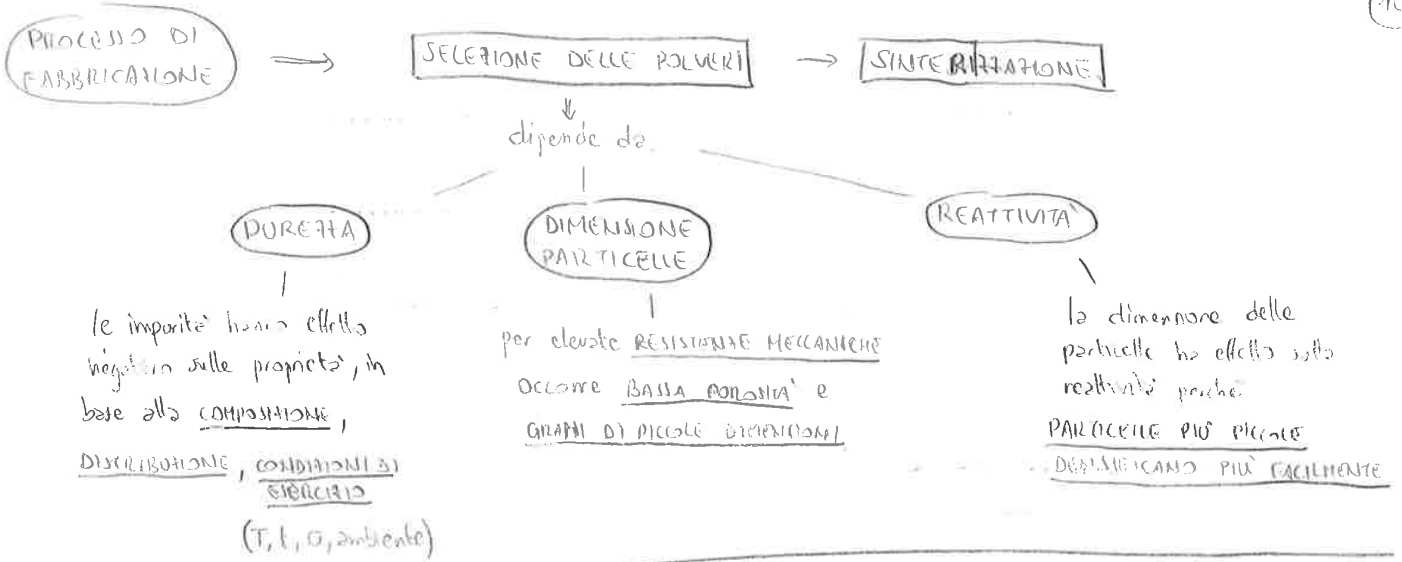 PROCESSO DI
FABBRICAZIONE
SELEZIONE DELLE POLVERI
SINTERIZZAZIONE
dipende da
PUREZZA
DIMENSIONE
PARTICELLE
REATTIVITÀ
le impurità hanno effetto
negativo sulle proprietà, in
base alla COMPOSIZIONE,
DISTRIBUZIONE, CONDIZIONI DI
ESERCIZIO
(T, t, σ, ambiente)
per elevate RESISTENZE MECCANICHE
occorre BASSA POROSITÀ e
GRANI DI PICCOLE DIMENSIONI
la dimensione delle
particelle ha effetto sulla
reattività perché
PARTICELLE PIÙ PICCOLE
DENSIFICANO PIÙ FACILMENTE